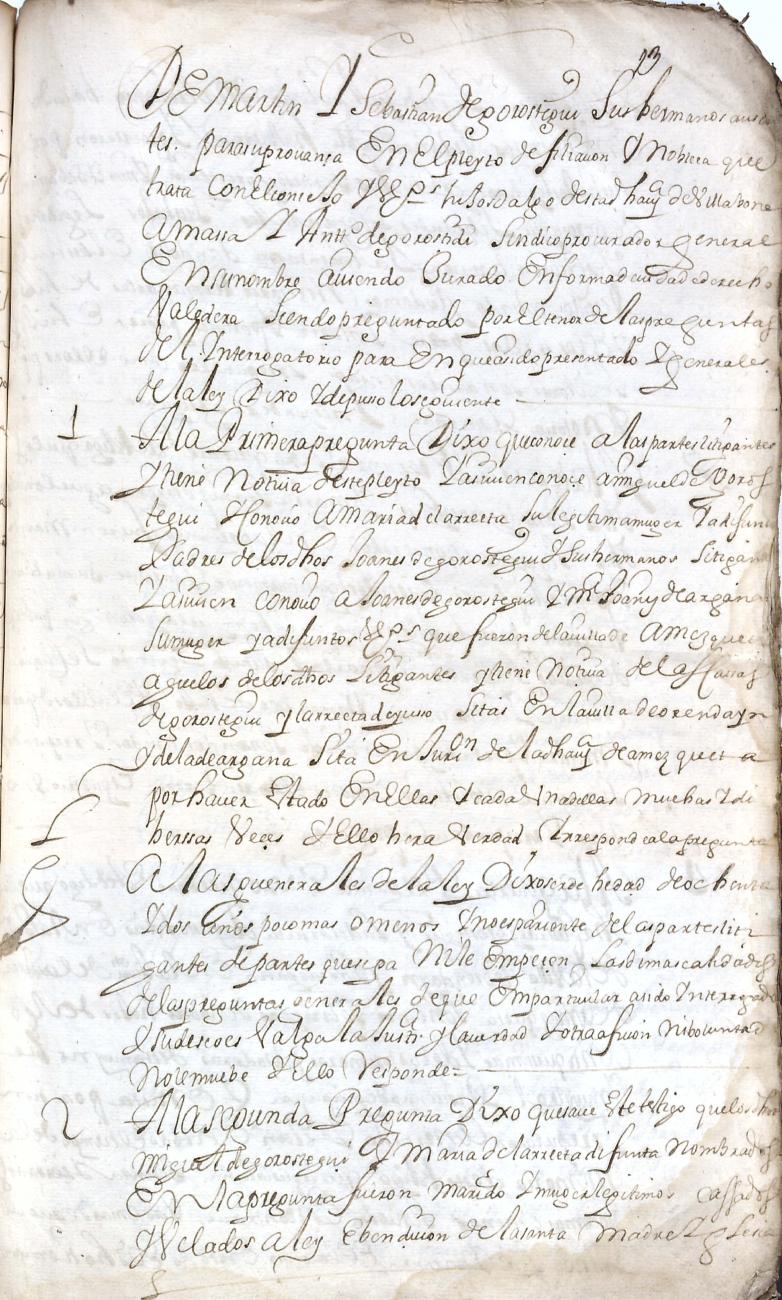 23
De Martin Y Sebastian de gorostegui Sus hermanos ausen
tes. para su provanza En El pleyto de filiacion Y Nobleza que
trata Con El concejo Y Vºs hijosdalgo de esta dha Uª de Villabona
Amassa Y Anttº de gorostidi Sindico procurador general
En su nombre aviendo Jurado En forma devida de derecho
Valedera Siendo preguntado por El tenor de las preguntas
del Interrogatorio para En que a sido presentado Y generales
de la ley Dixo Y depuso lo seguiente
1 A la Primera pregunta Dixo que conoce a las partes litigantes
y tiene Noticia deste pleyto Y assi vien conoce a miguel de Goros
tegui Y Conocio A Maria de larrecta su legitima muger Ya difunta
Padres de los dhos Joanes de gorostegui Y Sus hermanos litigantes
Y assi vien conocio a Joanes de gorostegui Y Mª Joany de argana
Su muger ya difuntos Vºs que fueron de la villa de Amezqueta
aguelos de los dhos Litigantes y tiene Noticia de las Cassas
de gorostegui y larrecta de yusso sitas En la villa de orendayn
y de la de argana Sita En Juri on de la dha Uª de amezqueta
por haver Estado En Ellas Y cada Una dellas muchas Y di
berssas Veçes Y Ello hera Verdad Y rresponde a la pregunta
A las guenerales de la ley Dixo ser de hedad de ochenta
Y dos años poco mas o menos Y no es pariente de las partes liti
gantes de partes que sepa Ni le Empecen Las dimas calidades
de las preguntas generales de que En particular a sido Interrogado
Y su deseo es Valga la Justª y la verdad Y otra aficion ni boluntad
No le muebe Y Ello Responde=
2 A la segunda Pregunta Dixo que save Este testigo que los dhos
Miguel de gorostegui Y Maria de larrecta difunta Nombrados
En la pregunta fueron Marido Y muger legitimos Cassados
y Velados a ley E bendicion de la santa Madre Yglesia